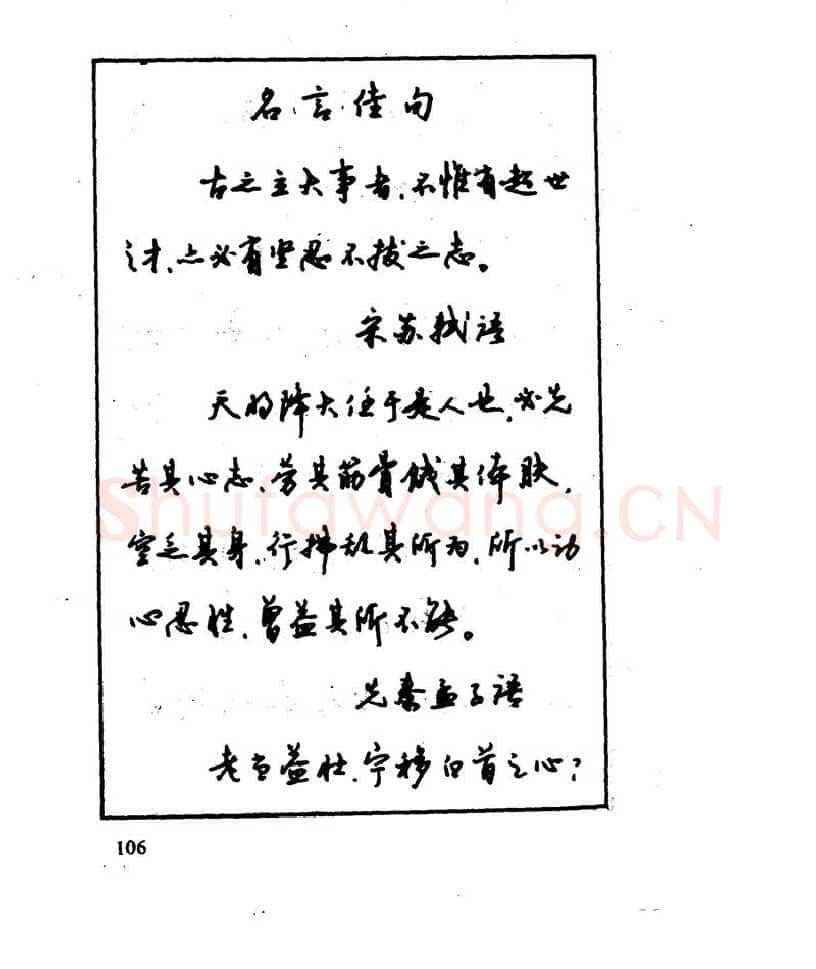 名言佳句
古之立大事者,不惟有超世
之才,亦必有坚忍不拔之志。
宋苏轼语
天将降大任于是人也,必先
苦其心志,劳其筋骨饿其体肤,
空乏其身,行拂乱其所为,所以动
心忍性,曾益其所不能。
先秦孟子语
老当益壮,宁移白首之心?
106
Shufawang.CN